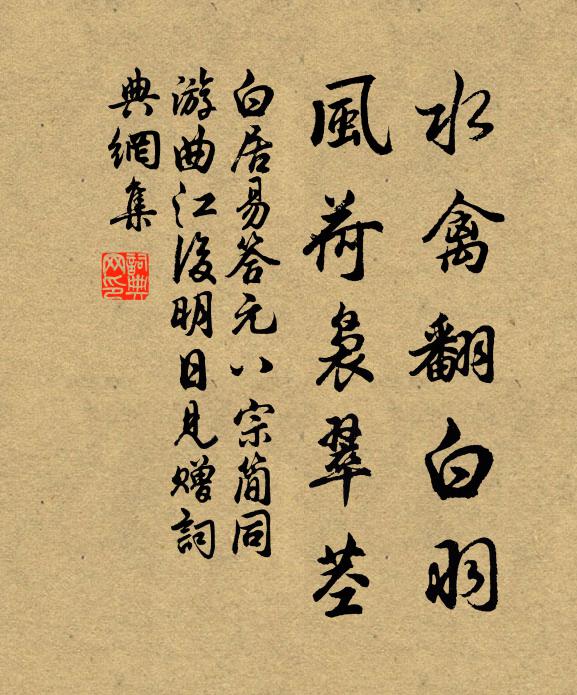 水禽翻白羽
風荷裊翠莖
白居易答元八宗簡同
游曲江後明日見贈詞
典網集
詞典網印